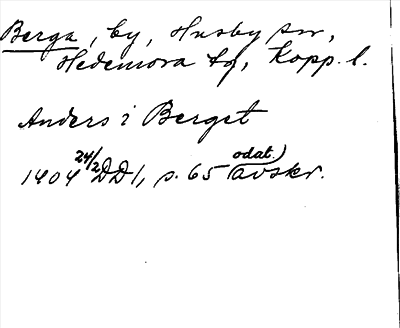 Berga, by, Husby sn,
Hedemora tg, Kopp. l.
Anders i Berget
1404 24/2 DD1, s. 65 (odat.) avskr.